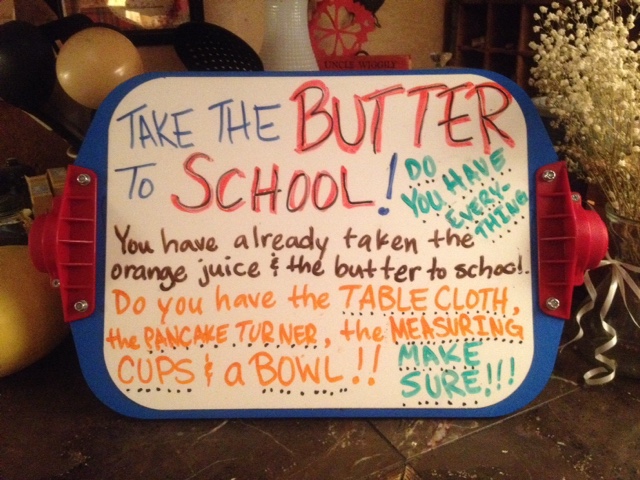 UNCLE WIGGILY
TAKE THE BUTTER
TO SCHOOL!
DO
YOU HAVE
EVERY-
THING
You have already taken the
orange juice & the butter to school.
Do you have the TABLE CLOTH,
the PANCAKE TURNER, the MEASURING
CUPS & a BOWL!!
MAKE
SURE!!!